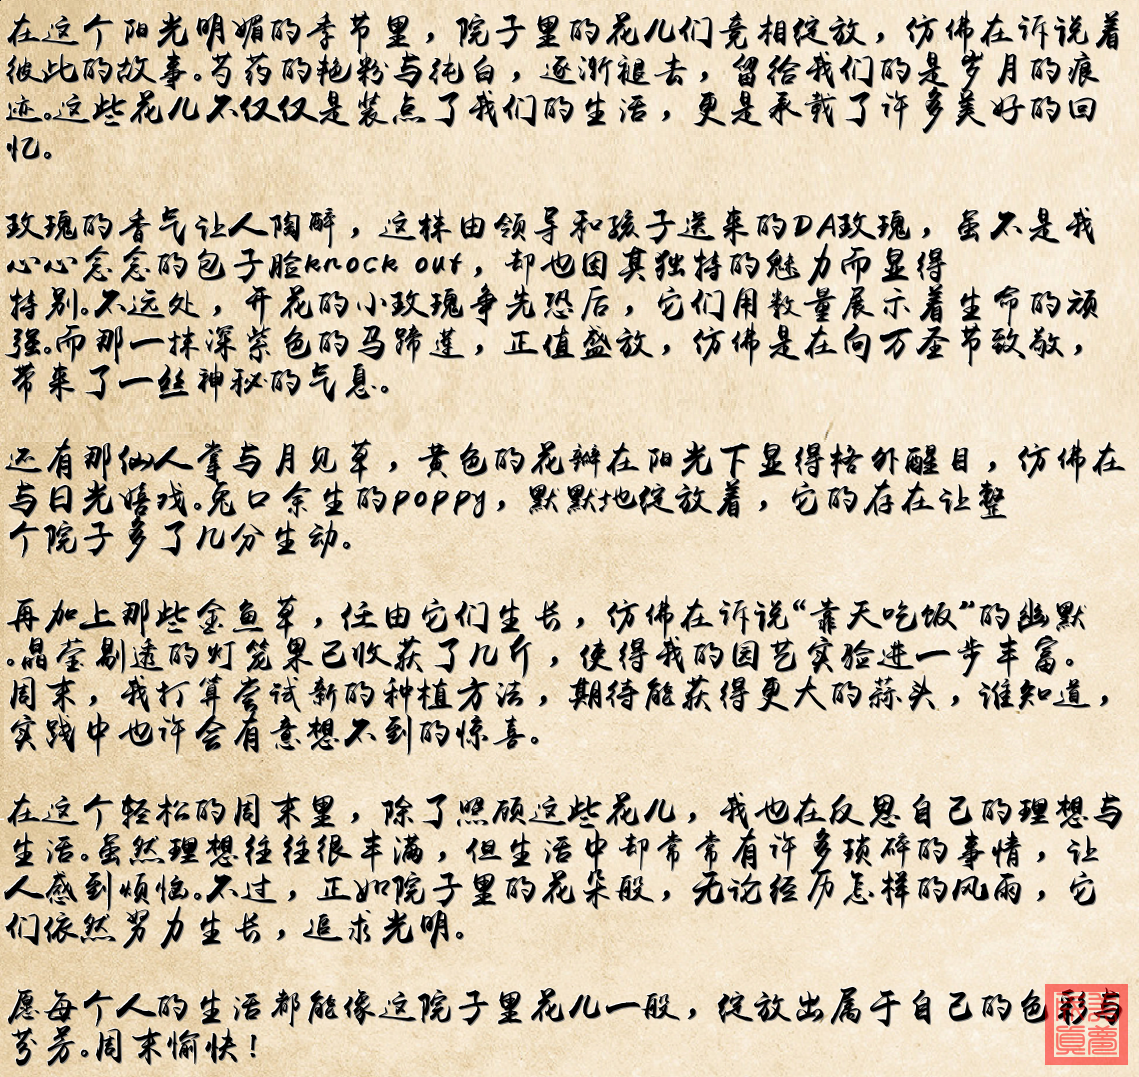 在这个阳光明媚的季节里，院子里的花儿们竞相绽放，仿佛在诉说着
彼此的故事。芍药的艳粉与纯白，逐渐褪去，留给我们的是岁月的痕
迹。这些花儿不仅仅是装点了我们的生活，更是承载了许多美好的回
忆。
玫瑰的香气让人陶醉，这株由领导和孩子送来的DA玫瑰，虽不是我
心心念念的包子脸knock out，却也因其独特的魅力而显得
特别。不远处，开花的小玫瑰争先恐后，它们用数量展示着生命的顽
强。而那一抹深紫色的马蹄莲，正值盛放，仿佛是在向万圣节致敬，
带来了一丝神秘的气息。
还有那仙人掌与月见草，黄色的花瓣在阳光下显得格外醒目，仿佛在
与日光嬉戏。兔口余生的poppy，默默地绽放着，它的存在让整
个院子多了几分生动。
再加上那些金鱼草，任由它们生长，仿佛在诉说“靠天吃饭”的幽默
。晶莹剔透的灯笼果已收获了几斤，使得我的园艺实验进一步丰富。
周末，我打算尝试新的种植方法，期待能获得更大的蒜头，谁知道，
实践中也许会有意想不到的惊喜。
在这个轻松的周末里，除了照顾这些花儿，我也在反思自己的理想与
生活。虽然理想往往很丰满，但生活中却常常有许多琐碎的事情，让
人感到烦恼。不过，正如院子里的花朵般，无论经历怎样的风雨，它
们依然努力生长，追求光明。
愿每个人的生活都能像这院子里花儿一般，绽放出属于自己的色彩与
芬芳。周末愉快！